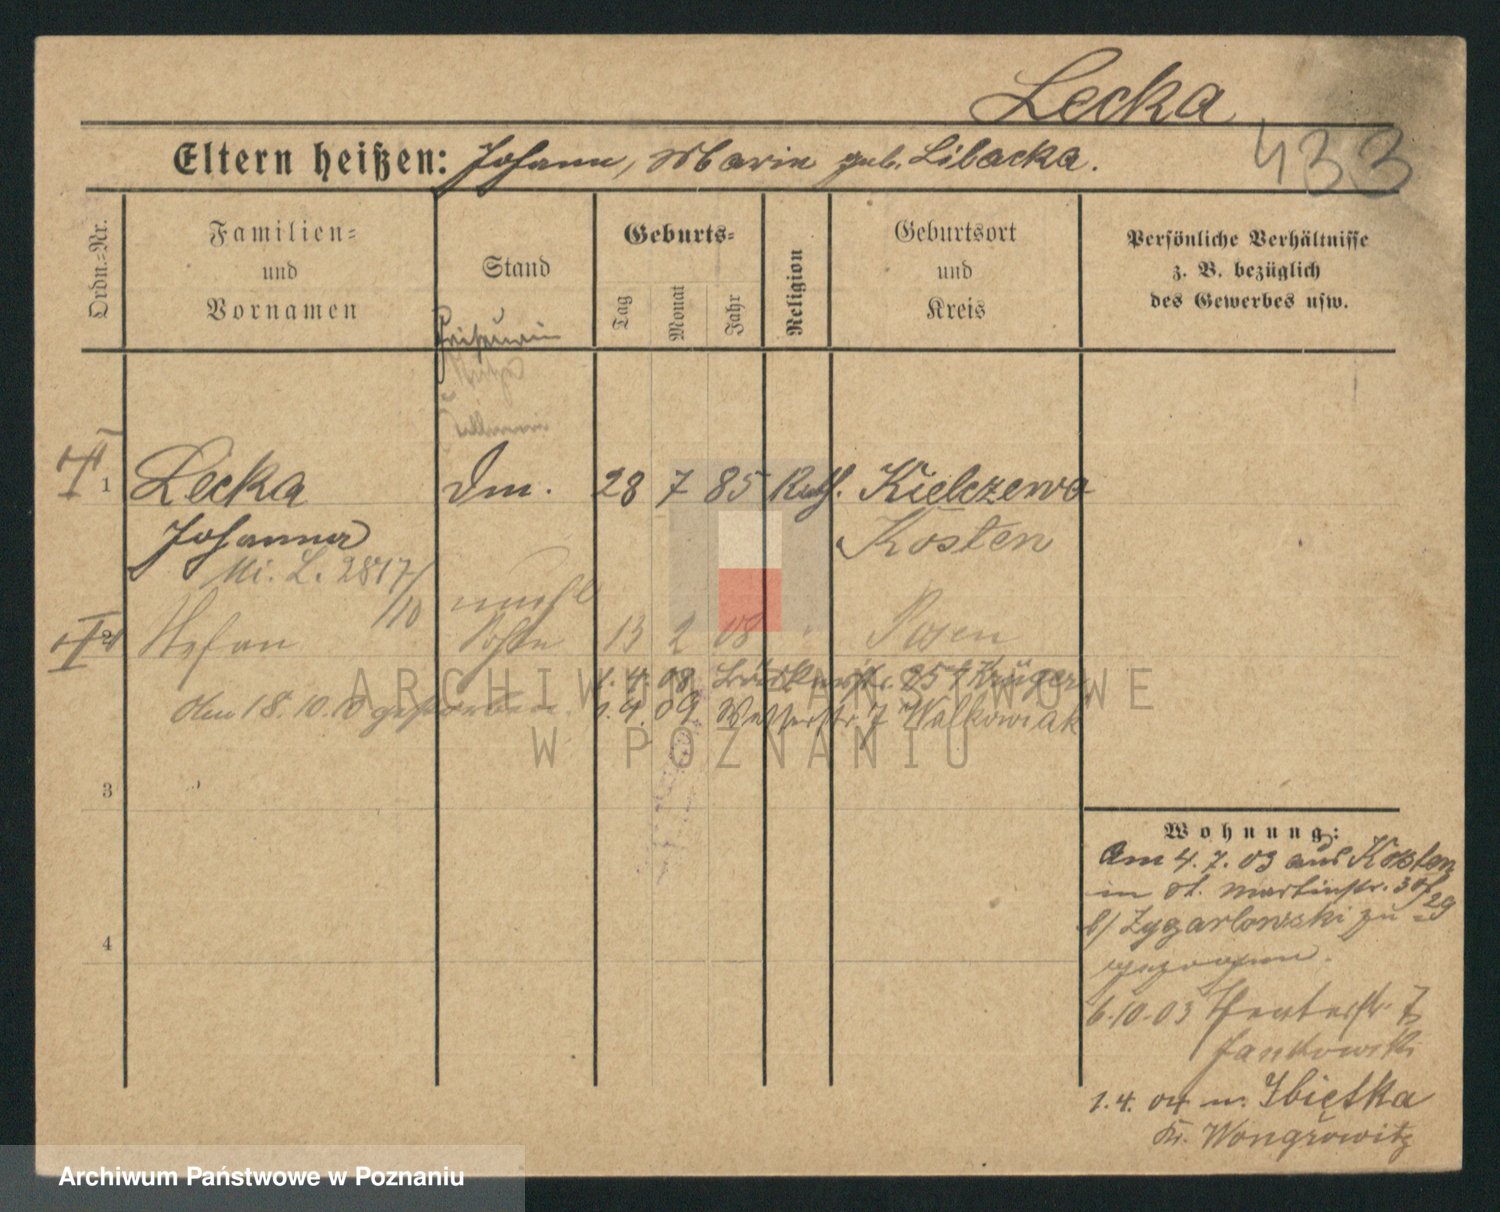 Lecka
433
Eltern heißen: Johann, Maria geb. Libacka.
Ordn.-Nr.
Familien- und Vornamen
Stand
Geburts-
Tag
Monat
Jahr
Religion
Geburtsort und Kreis
Persönliche Verhältnisse z. B. bezüglich des Gewerbes usw.
II
1 Lecka Dm. 28 7 85 Kath. Kielczewo
Johanna Kosten
Mi. L. 2847/
/10
I
2 Stefan Sohn 13 2 08 " Posen
1. 4. 08 25 Krüger
den 18. 10. 10 gestorben 1. 4. 09 7 Walkowiak
3
4
Wohnung:
Am 4. 7. 03 aus Kosten
in St. Martinstr.
b/ Zygarlowski zu 29
gezogen.
6.10.03 Theaterstr. 7
Jankowski
1. 4. 04 n. Zbietka
Kr. Wongrowitz
ARCHIWUM PAŃSTWOWE
W POZNANIU
Archiwum Państwowe w Poznaniu